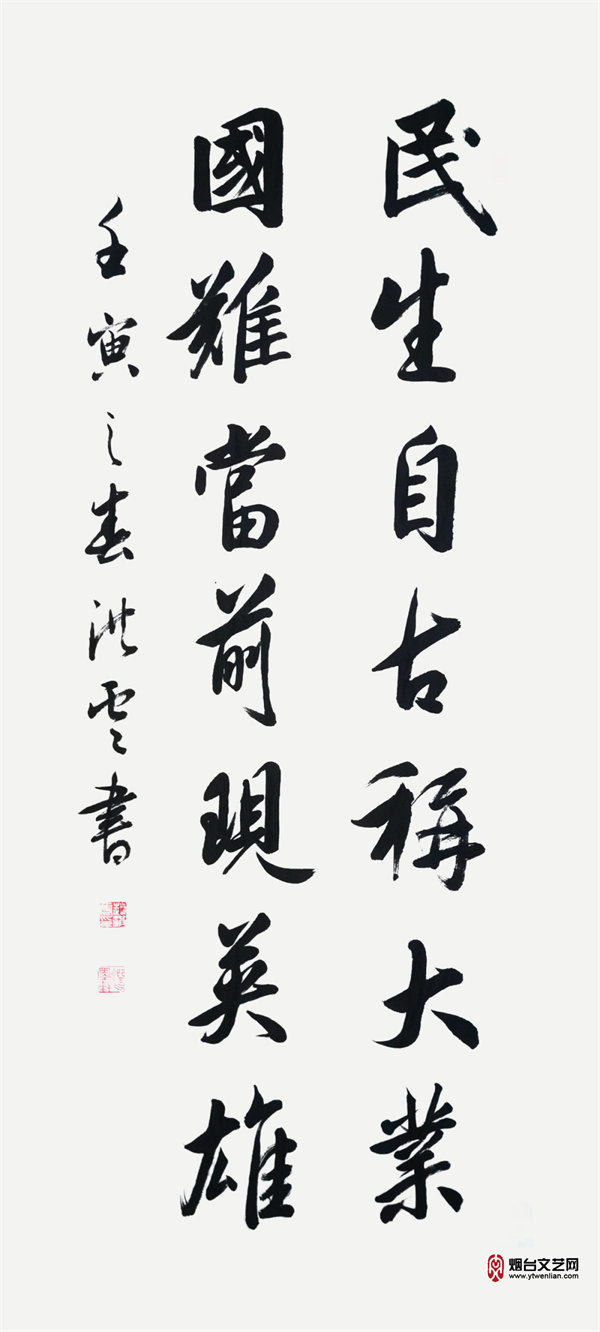 民生自古稱大業
國難當前現英雄
壬寅之春洪雲書
烟台文艺网
www.ytwenlian.com